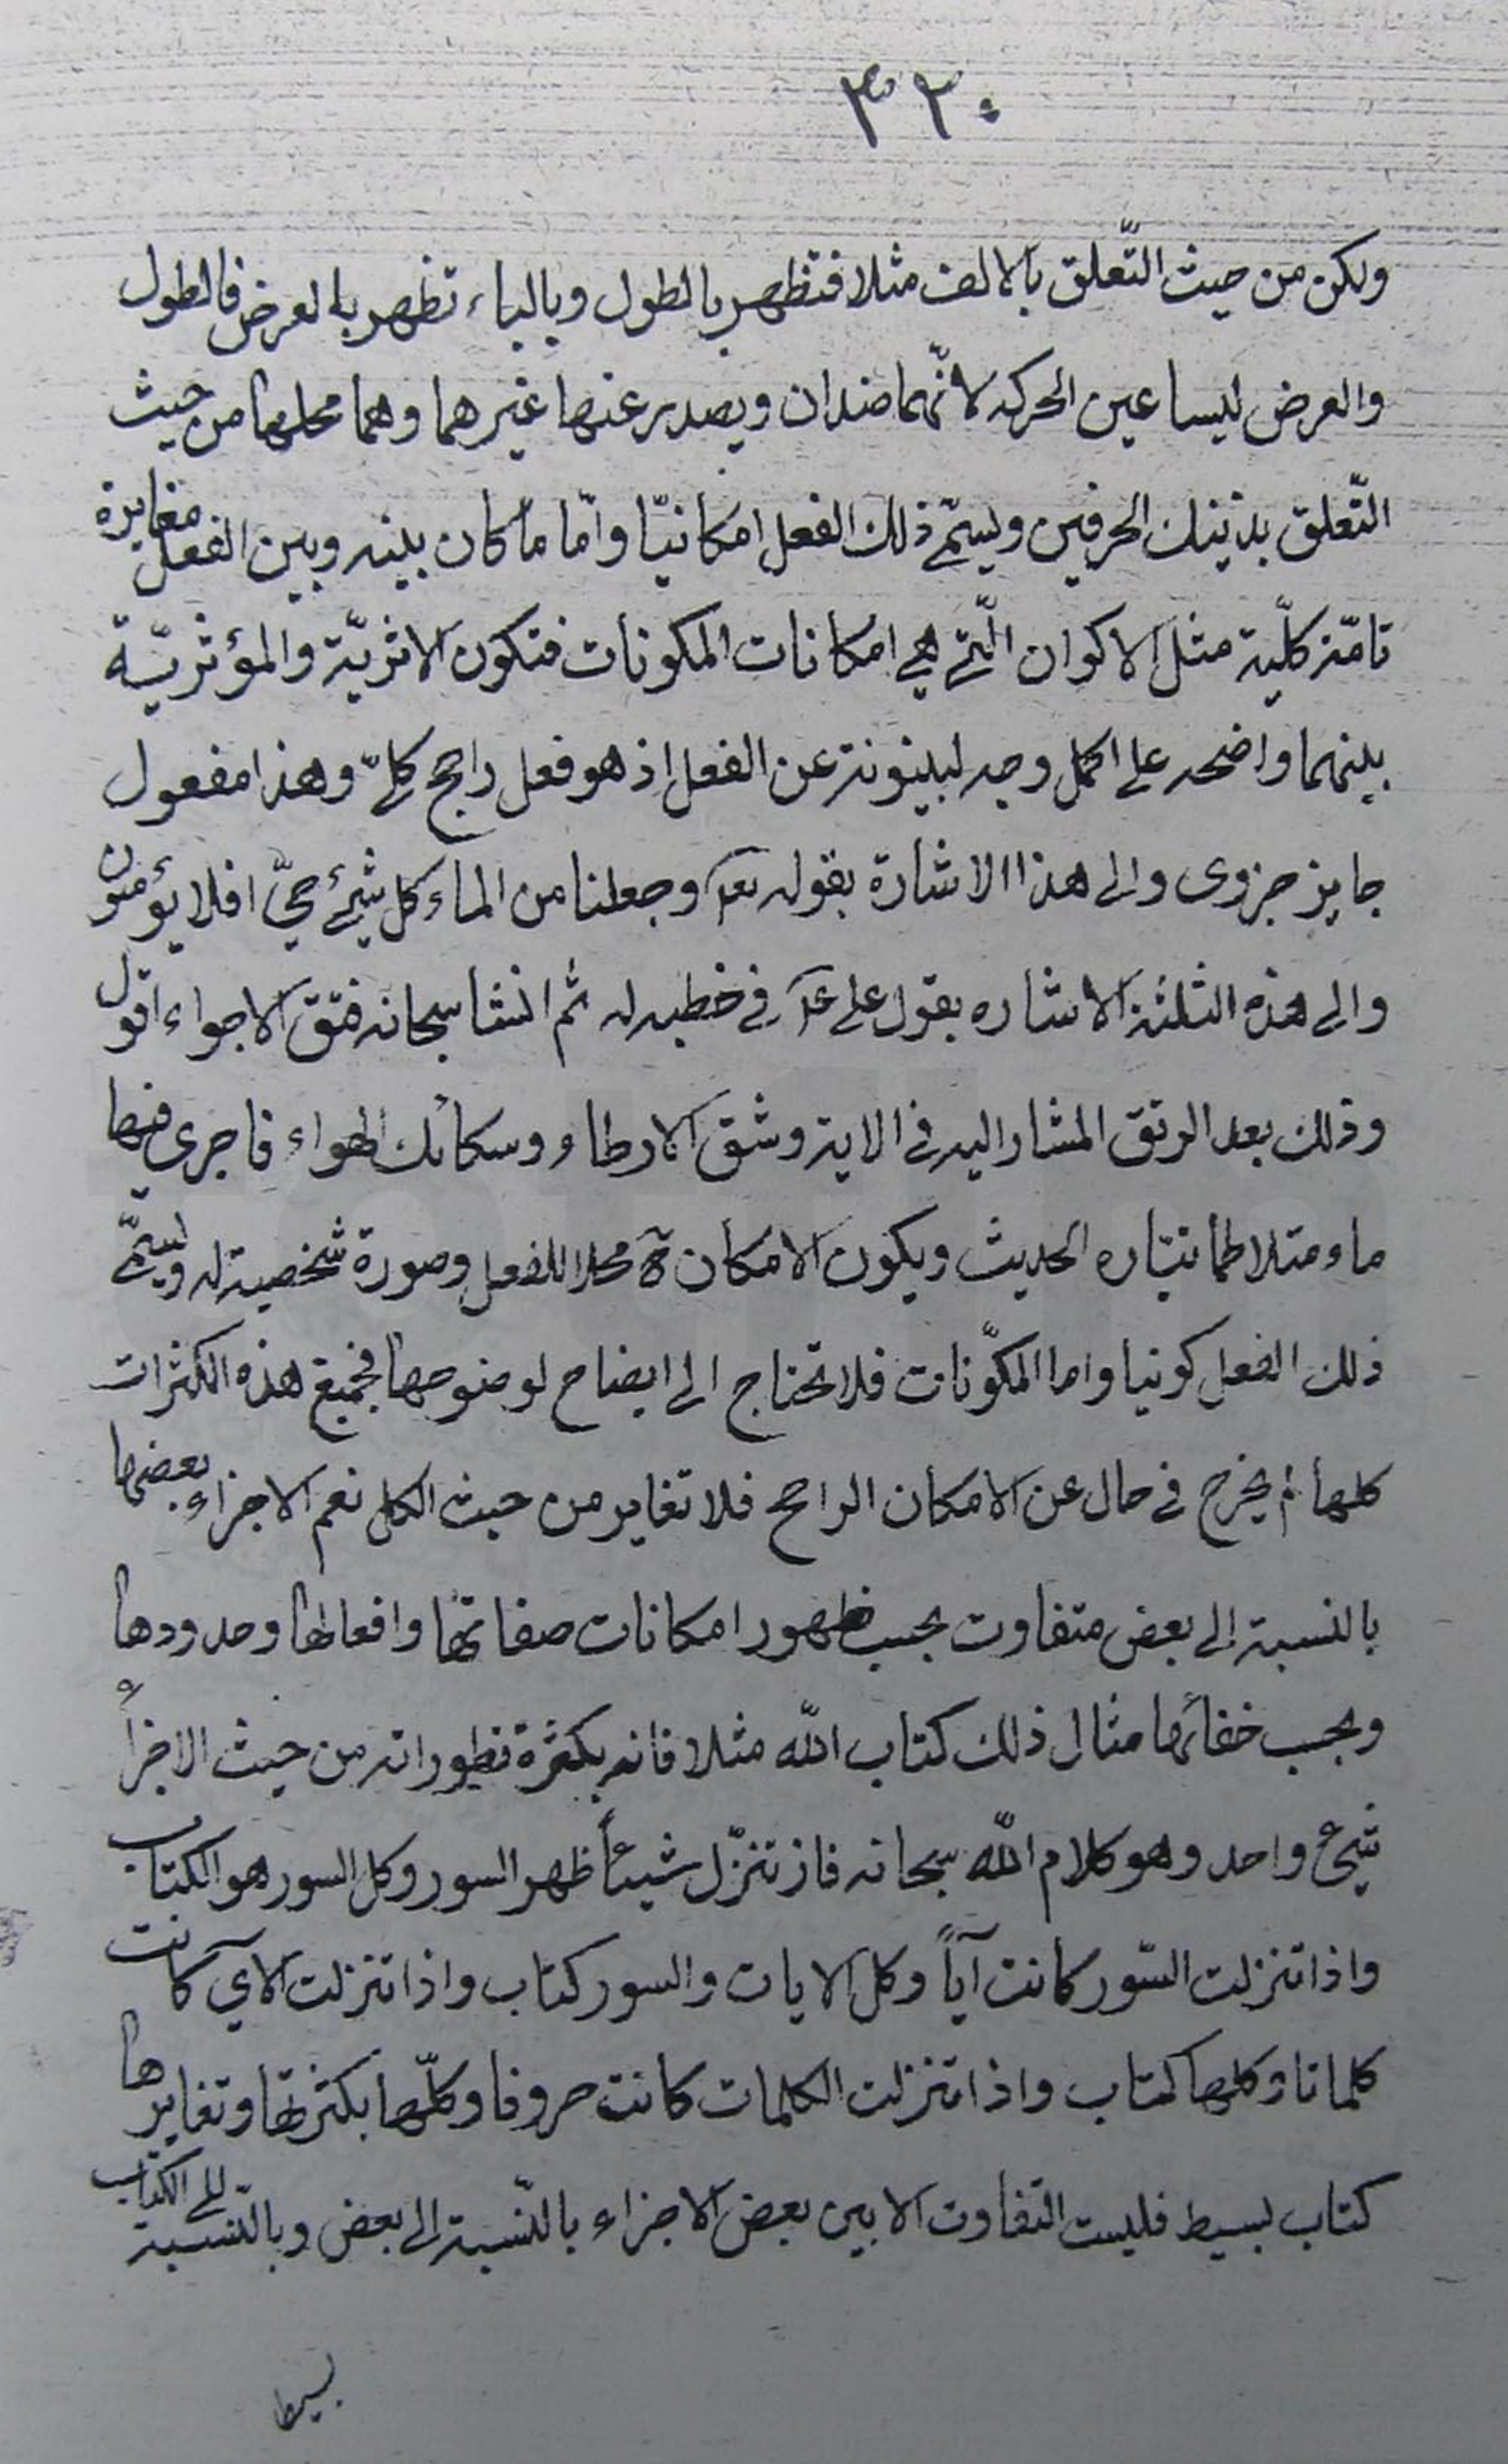 ٣٢٠
ولكن من حيث التّعلق بالالف مثلا فتظهر بالطول وبالباء تظهر بالعرض فالطول
والعرض ليسا عين الحركه لانّهما ضدان ويصدر عنها غيرهما وهما محلها من حيث
التّعلق بذينك الحرفين ويسمّى ذلك الفعل امكانيّا وامّا ما كان بينه وبين الفعل مغايرة
تامّة كلّية مثل الاكوان الّتي هي امكانات المكونات فتكون الاثريّة والمؤثريّة
بينهما واضحه على اكمل وجه لبينونته عن الفعل اذ هو فعل راجح كلّي وهذا مفعول
جايز جزوى والى هذا الاشارة بقوله تعه وجعلنا من الماء كل شيئ حيّ افلا يؤمنون
والى هذه الثلثة الاشاره بقول على عه في خطبه له ثم انشا سبحانه فتق الاجواء اقول
وذلك بعد الرتق المشار اليه في الاية وشق الارجاء وسكائك الهواء فاجرى فيها
ماء متلاطما تيّاره الحديث ويكون الامكان ح محلا للفعل وصورة شخصية له ويسمّى
ذلك الفعل كونيا واما المكوّنات فلا تحتاج الى ايضاح لوضوحها فجميع هذه الكثرات
كلها لم يخرج في حال عن الامكان الراجح فلا تغاير من حيث الكل نعم الاجزاء بعضها
بالنسبة الى بعض متفاوت بحسب ظهور امكانات صفاتها وافعالها وحدودها
وبحسب خفائها مثال ذلك كتاب الله مثلا فانه بكثرة تطوراته من حيث الاجزاء
شيئ واحد وهو كلام الله سبحانه فاذ تنزّل شيئاً ظهر السور وكل السور هو الكتاب
واذا تنزلت السّور كانت آياً وكل الايات والسور كتاب واذا تنزلت الآي كانت
كلماتا وكلها كتاب واذا تنزلت الكلمات كانت حروفا وكلّها بكثرتها وتغايرها
كتاب بسيط فليست التفاوت الا بين بعض الاجزاء بالنّسبة الى بعض وبالنّسبة الى الكتاب
بسيط